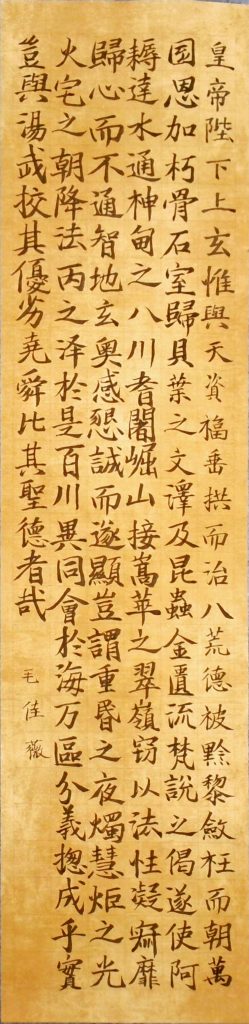 皇帝陛下上玄惟與天資福垂拱而治八荒德被黔黎斂衽而朝萬
囯恩加朽骨石室歸貝葉之文譯及昆蟲金匱流梵說之偈遂使阿
耨達水通神甸之八川耆闍崛山接嵩華之翠嶺窃以法性凝寂靡
歸心而不通智地玄奧感懇誠而遂顯豈謂重昏之夜燭慧炬之光
火宅之朝降法雨之泽於是百川異同會於海万區分義揔成乎實
豈與湯武挍其優劣堯舜比其聖德者哉
毛佳薇